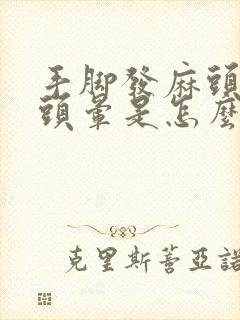 手脚發麻頭
頭暈是怎麼
克里斯蒂亞諾